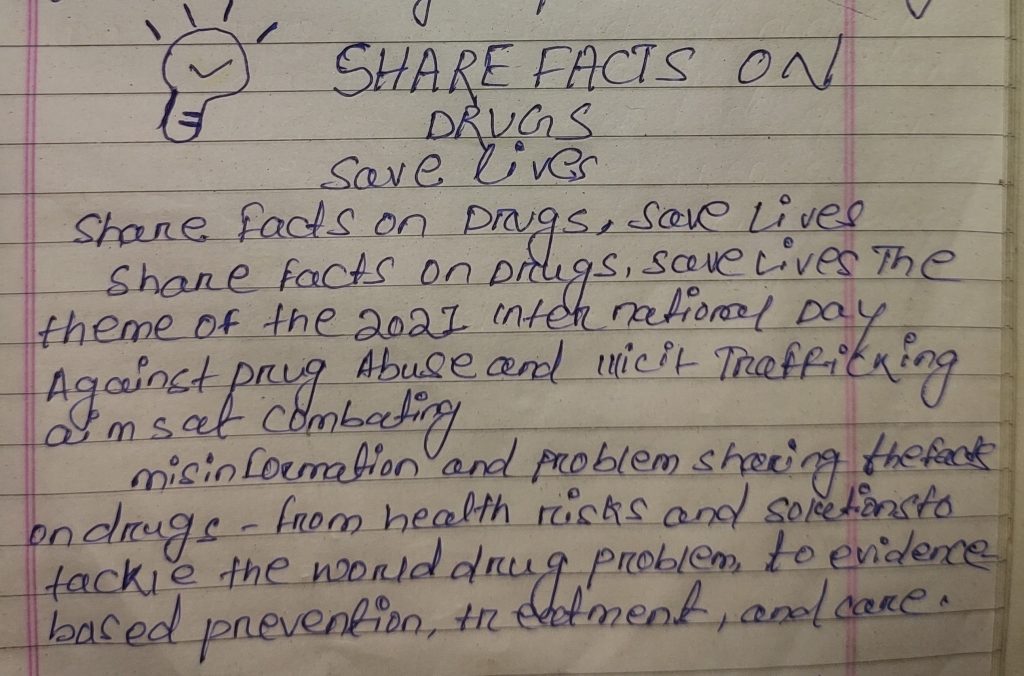 SHARE FACTS ON
DRUGS
Save lives
Share facts on Drugs, save Lives
Share facts on Drugs, save Lives The
theme of the 2021 international Day
Against Drug Abuse and illicit Traffickning
aims at combating
misinformation and problem sharing the facts
on drugs - from health risks and solutions to
tackle the world drug problem, to evidence
based prevention, treatment, and care.